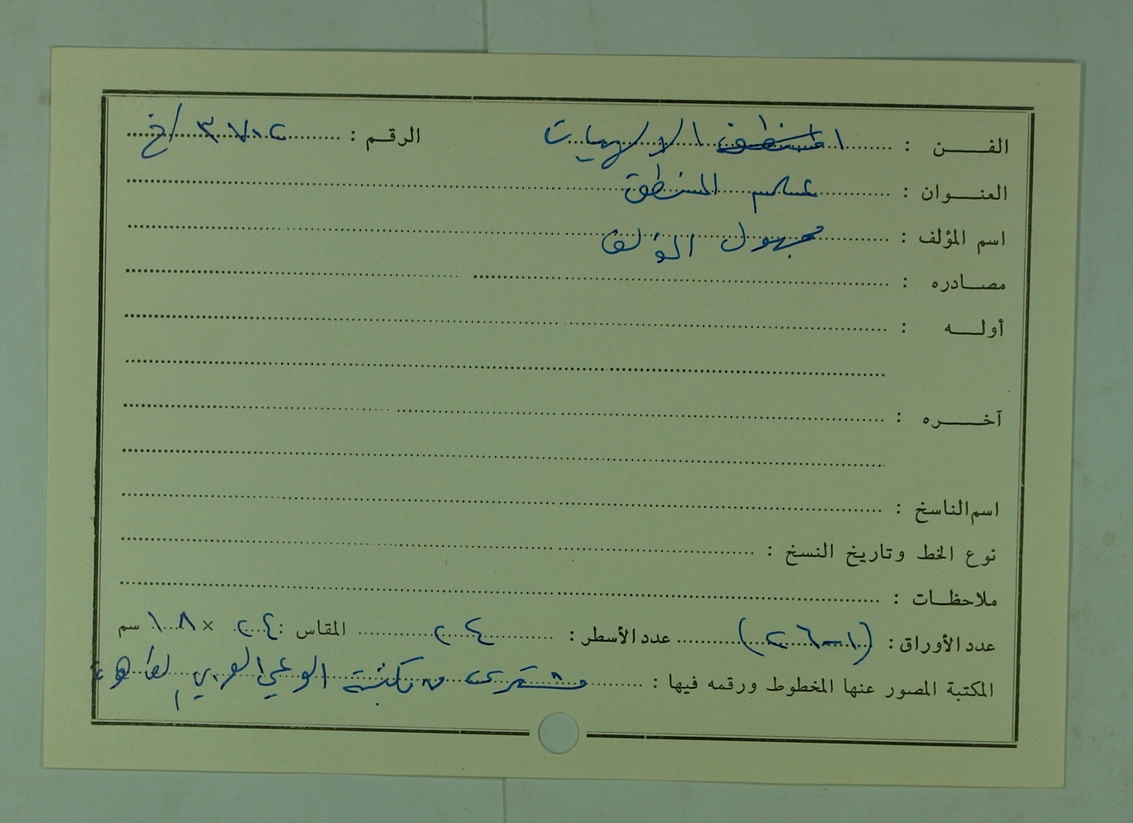 الفن : المنطق الالهيات الرقم : ٣٧٠٢/خ
العنوان : علم المنطق
اسم المؤلف : مجهول المؤلف
مصادره :
أوله :
آخره :
اسم الناسخ :
نوع الخط وتاريخ النسخ :
ملاحظات :
عدد الأوراق : (١-٢٦) عدد الأسطر : ٢٤ المقاس : ٢٤ × ١٨ سم
المكتبة المصور عنها المخطوط ورقمه فيها : مشترى من مكتبة الوعي العربي